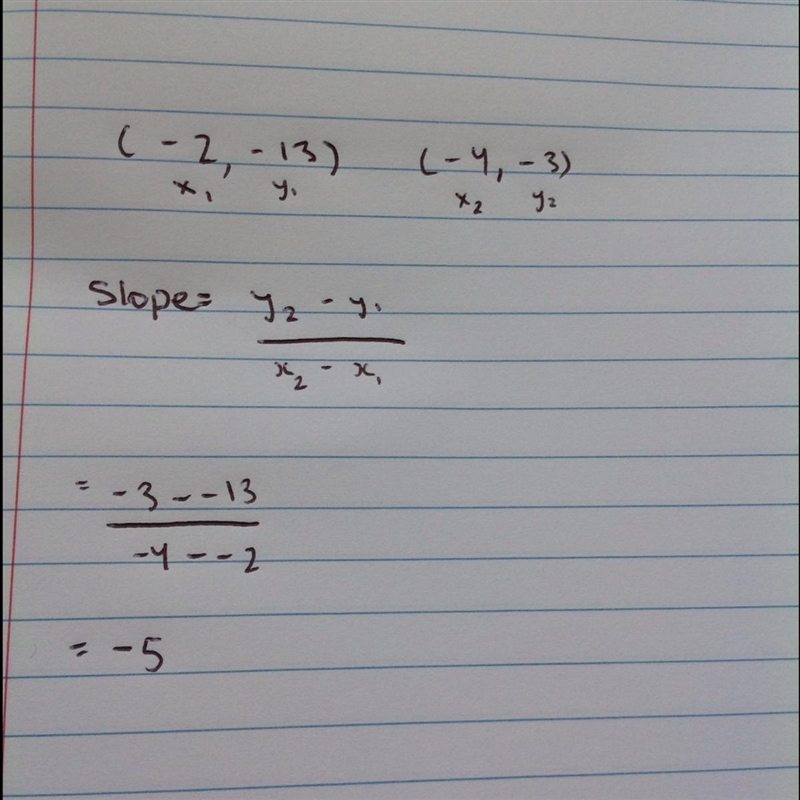 (-2, -13) (-4, -3)
x₁ y₁ x₂ y₂
Slope= y₂ - y₁
x₂ - x₁
= -3 - -13
-4 - -2
= -5